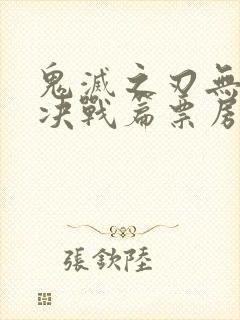 鬼滅之刃無
决戰篇票房
張欽陸